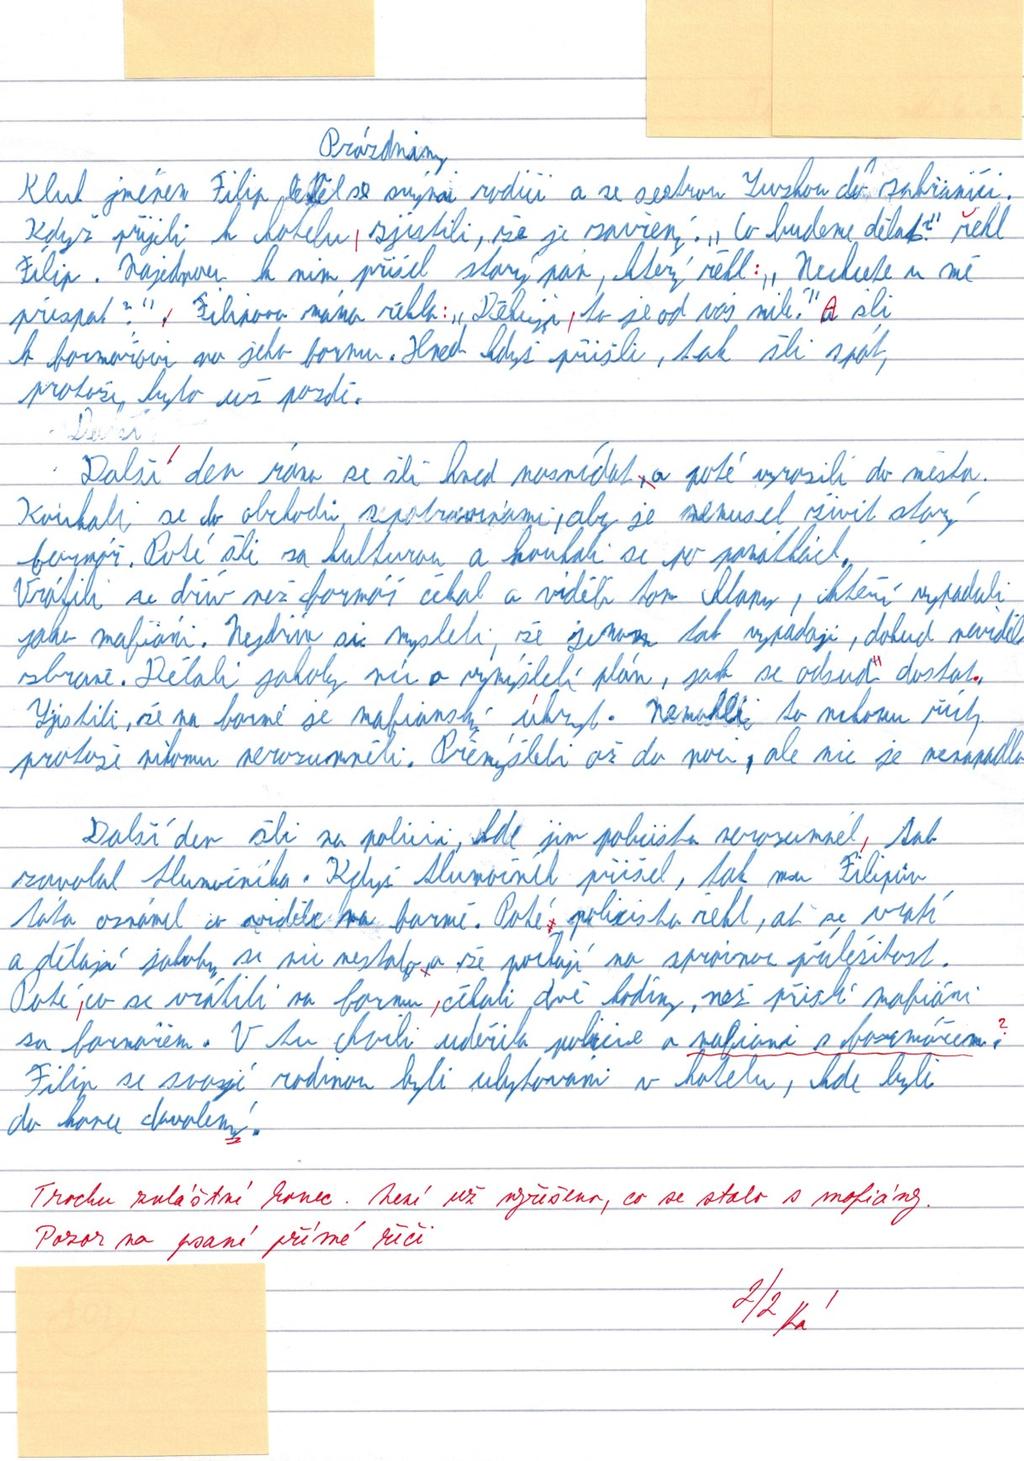 Prázdniny
Kluk jménem Filip letěl se svými rodiči a ze sestrou Zuzkou do zahraničí.
Když přijeli k hotelu, zjistili, že je zavřený. „Co budeme dělat?" řekl
Filip. Najednou k nim přišel starý pán, který řekl: „Nechcete u mě
přespat?", Filipova máma řekla: „Děkuji, to je od vás milé." A šli
k farmářovi na jeho farmu. Hned když přišli, tak šli spát,
protože, bylo už pozdě.
Další
Další den ráno se šli hned nasnídat, a poté vyrazili do města.
Koukali se do obchodu s potravinami, aby je nemusel živit starý
farmář. Poté šli za kulturou a koukali se po památkách.
Vrátili se dřív než farmář čekal a viděli tam chlapy, kteří vypadali
jako mafiáni. Nejdřív si mysleli, že jenom tak vypadají, dokud neviděli
zbraně. Dělali jakoby nic a vymýšleli plán, jak se odsud dostat.
Zjistili, že na farmě je mafiánský úkryt. Nemohli to nikomu říct,
protože nikomu nerozumněli. Přemýšleli až do noci, ale nic je nenapadlo
Další den šli na policii, kde jim policista nerozumněl, tak
zavolal tlumočníka. Když tlumočník přišel, tak mu Filipův
táta oznámil co viděli na farmě. Poté, policista řekl, ať se vrátí
a dělají jakoby se nic nestalo, a že počkají na správnou příležitost.
Poté, co se vrátili na farmu, čekali dvě hodiny, než přišli mafiáni
za farmářem. V tu chvíli udeřila policie a mafiáni s farmářem. ?
Filip se svojí rodinou byli ubytovaní v hotelu, kde byli
do konce dovolený.
Trochu zvláštní konec. Není už vyřešeno, co se stalo s mafiány.
Pozor na psaní přímé řeči
2/2 Ká